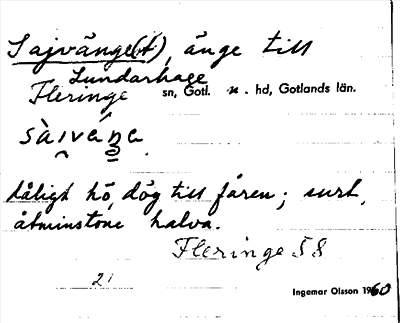 Sajvänge(t), änge till
Lundarhage
Fleringe sn, Gotl. n. hd, Gotlands län.
sàɪváŋa
dåligt hö, dög till fåren; surt,
åtminstone halva.
Fleringe 58
21
Ingemar Olsson 1960